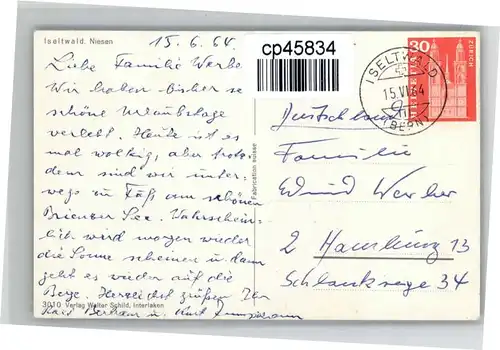 Iseltwald. Niesen
15.6.64.
cp45834
Liebe Familie
Wir haben bisher so
schöne Urlaubstage
verlebt. Heute ist es
mal wolkig, aber trotz-
dem sind wir unter-
wegs zu Fuß am schönen
Brienzer See. Wahrschein-
lich wird morgen wieder
die Sonne scheinen u. dann
geht es wieder auf die
Berge. Herzlichst grüßen Ihr
u. Kurt
3010 Verlag Walter Schild, Interlaken
Fabrication suisse
30
HELVETIA
ZÜRICH
ISELTWALD
15.VI.64
(BERN)
Deutschland
Familie
Edwind Werber
2 Hamburg 13
34